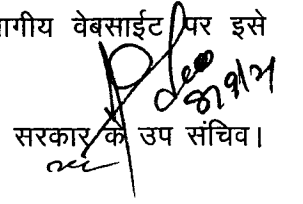 ागीय वेबसाईट पर इसे
सरकार के उप संचिव।